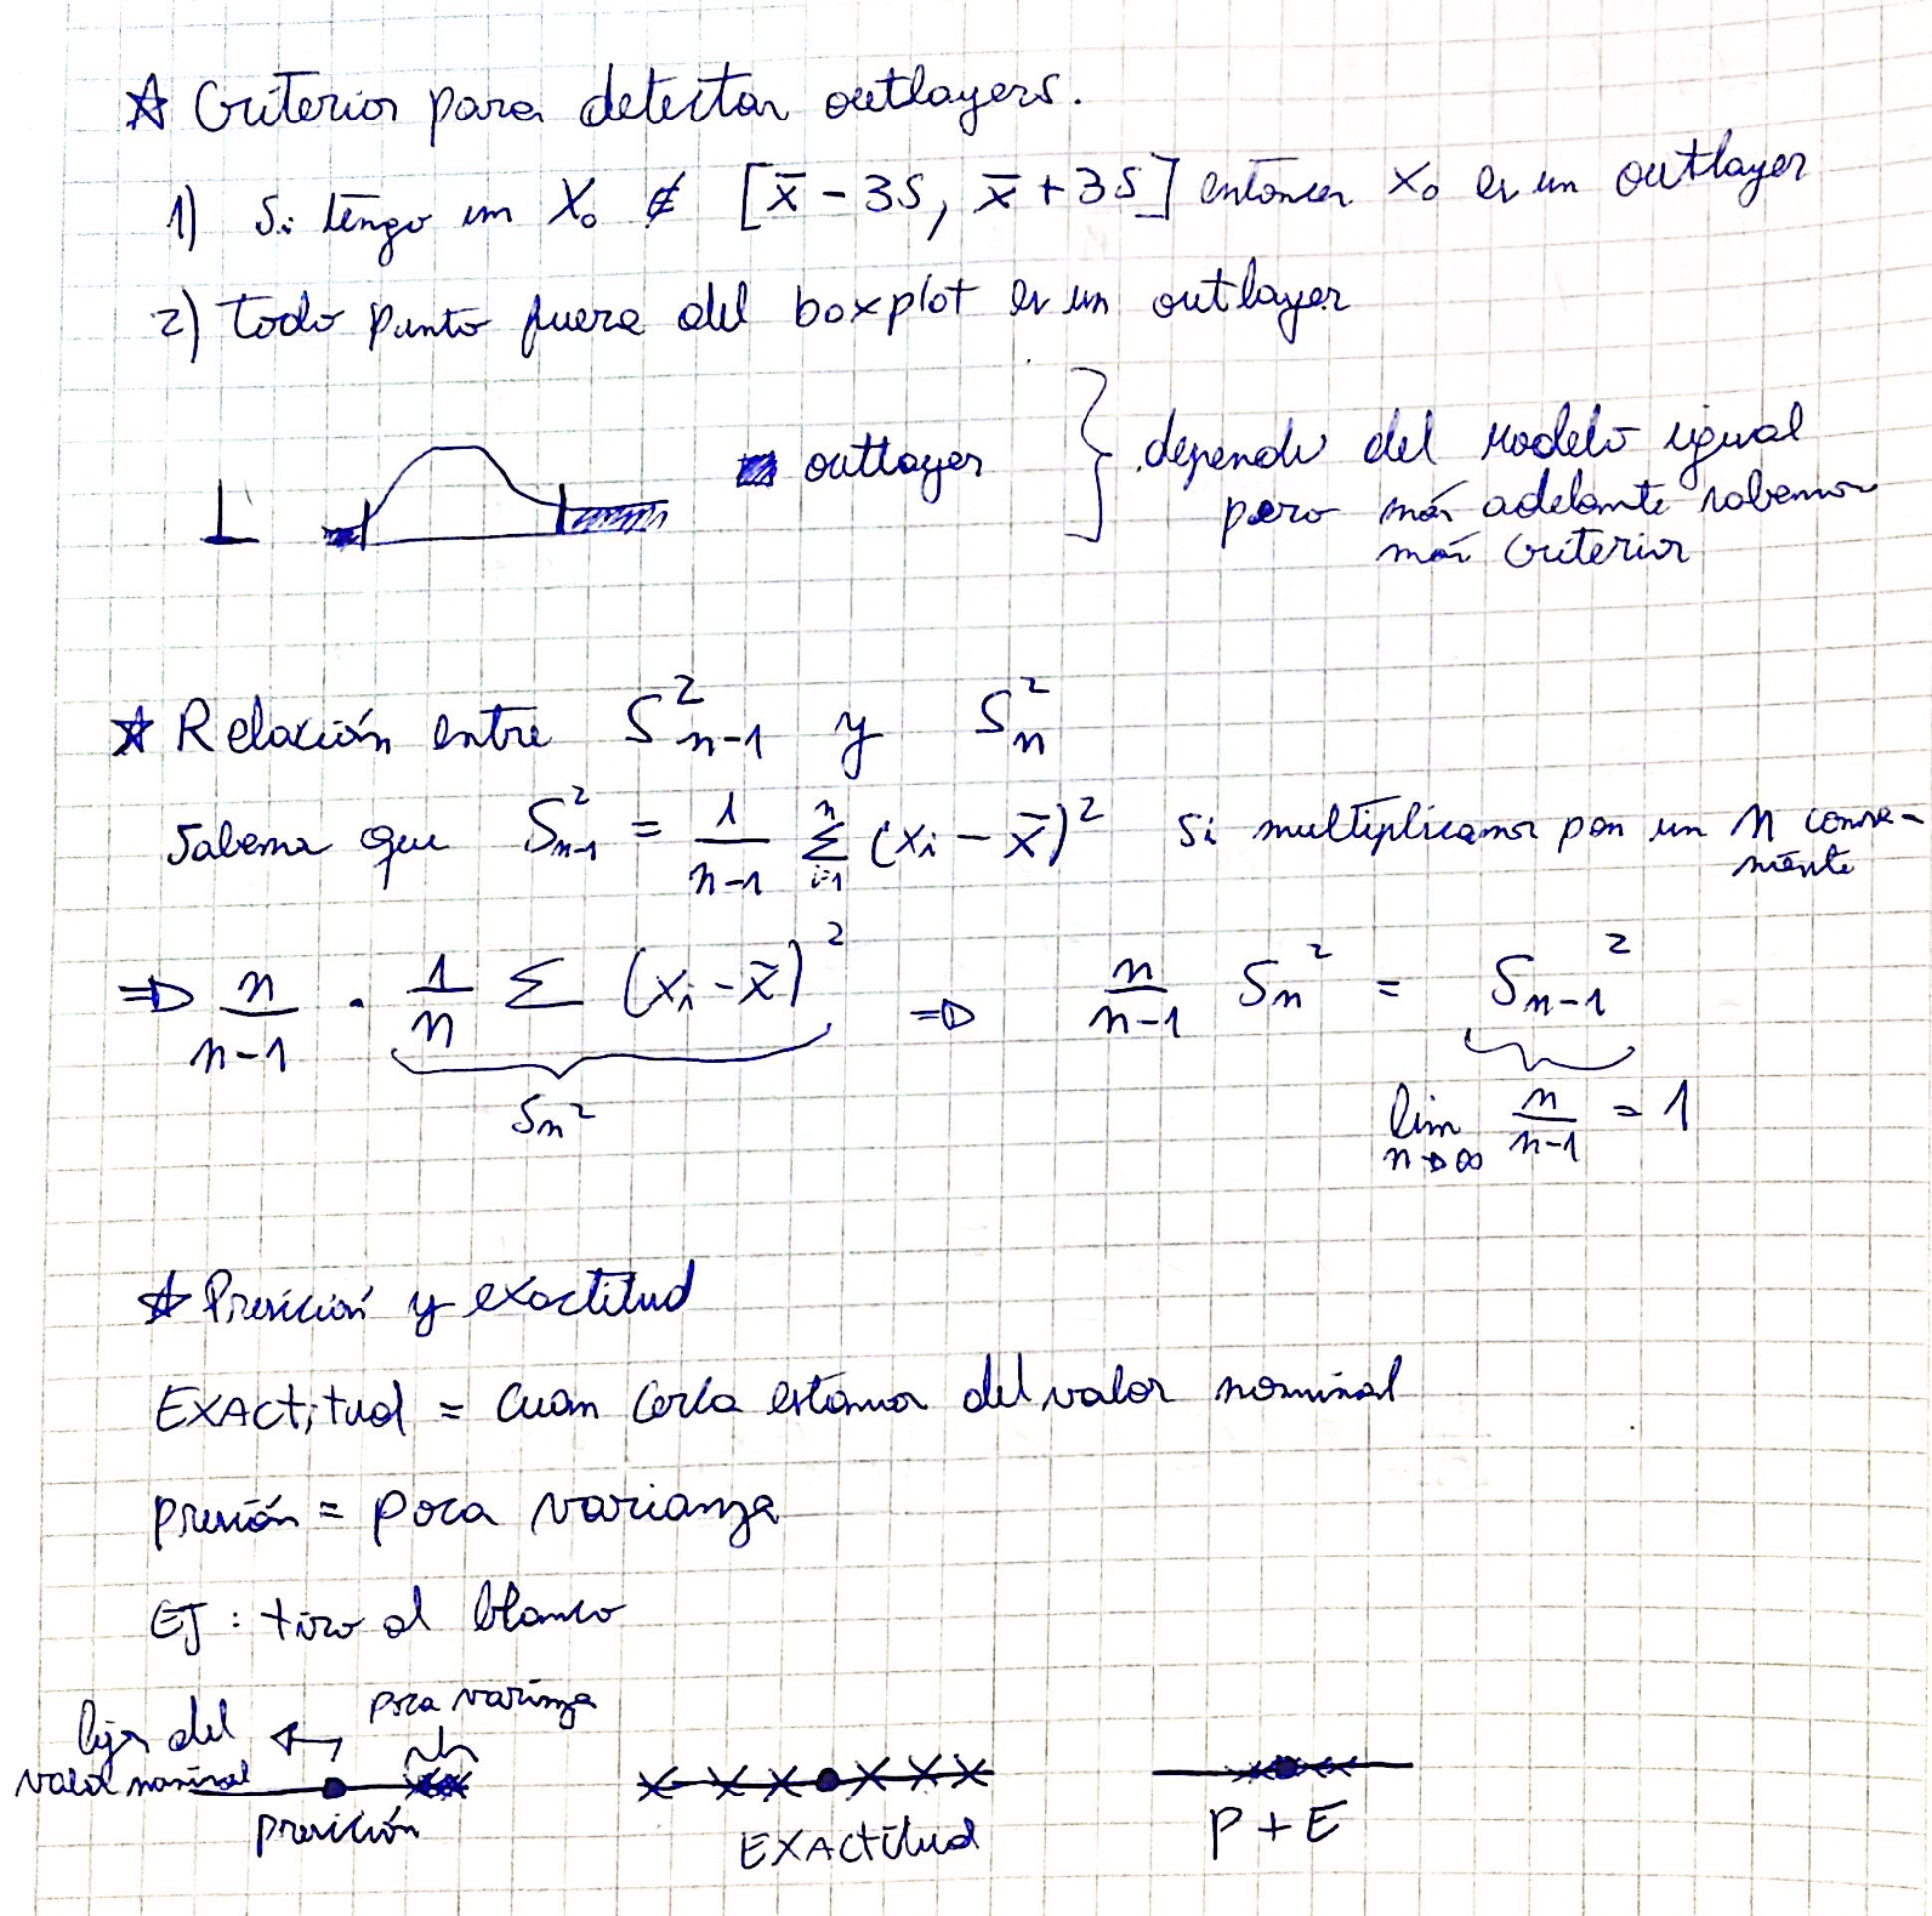 ☆ Criterios para detectar outlayers.
1) Si tengo un X₀ ∉ [x̄ - 3S, x̄ + 3S] entonces x₀ es un outlayer
2) Todo punto fuera del boxplot es un outlayer
outlayer } depende del modelo igual
pero más adelante sabemos
más criterios
☆ Relación entre S²ₙ₋₁ y S²ₙ
Sabemos que S²ₙ₋₁ = 1/(n-1) Σⁿᵢ₌₁ (xᵢ - x̄)² Si multiplicamos por un n conve-
niente
⇒ n/(n-1) · 1/n Σ (xᵢ - x̄)² ⇒ n/(n-1) Sₙ² = Sₙ₋₁²
Sₙ²
lim n→∞ n/(n-1) = 1
☆ Presición y exactitud
EXActitud = Cuan cerca estamos del valor nominal
presión = poca varianza
EJ : tiro al blanco
poca varinza
lejos del
valor nominal
presición
EXActitud
P + E